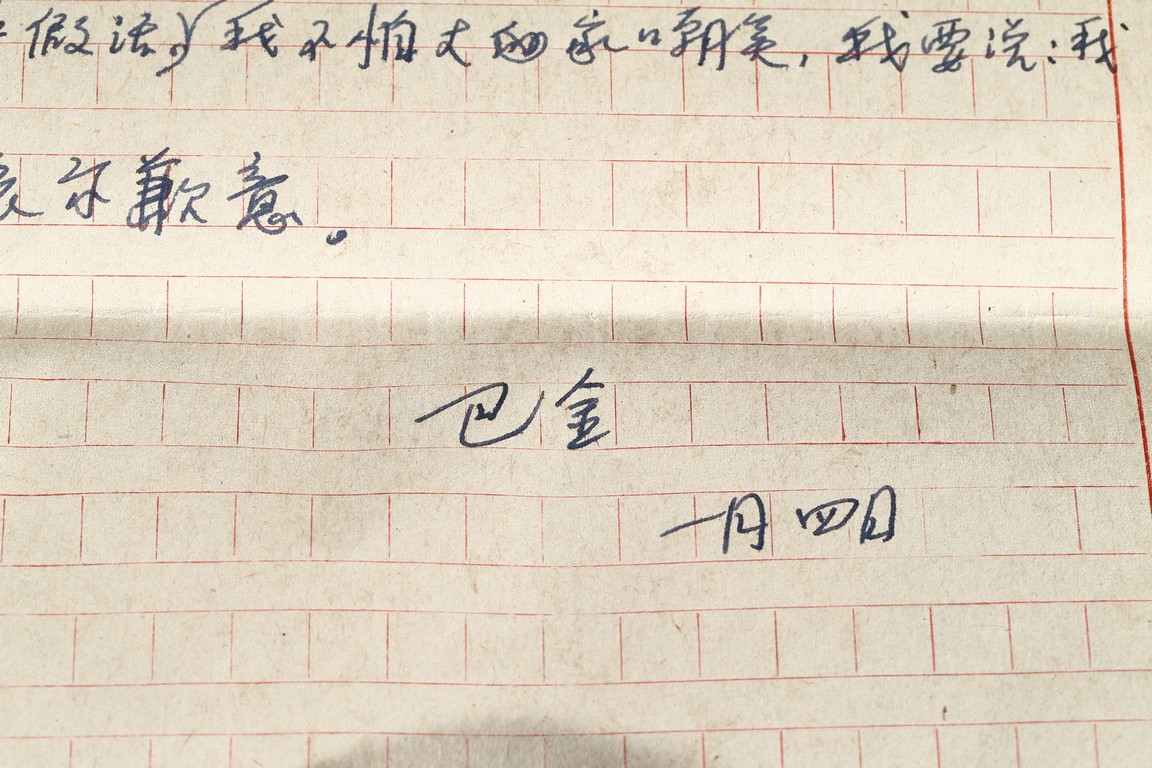 假话,)我不怕大家嘲笑,我要说:我
示歉意。
巴金
一月四日